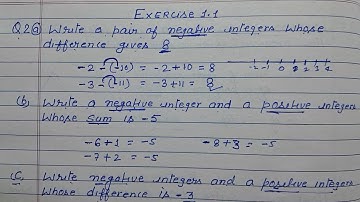 EXERCISE 1.1
Q.2(a) Write a pair of negative integers whose
difference gives 8
-2 -(-10) = -2+10 = 8
-3 -(-11) = -3+11 = 8
-2 -1 0 1 2 3 4
(b) Write a negative integer and a positive integer
whose sum is -5
-6+1 = -5 -8+3 = -5
-7+2 = -5
(c) Write negative integers and a positive integers
whose difference is -3